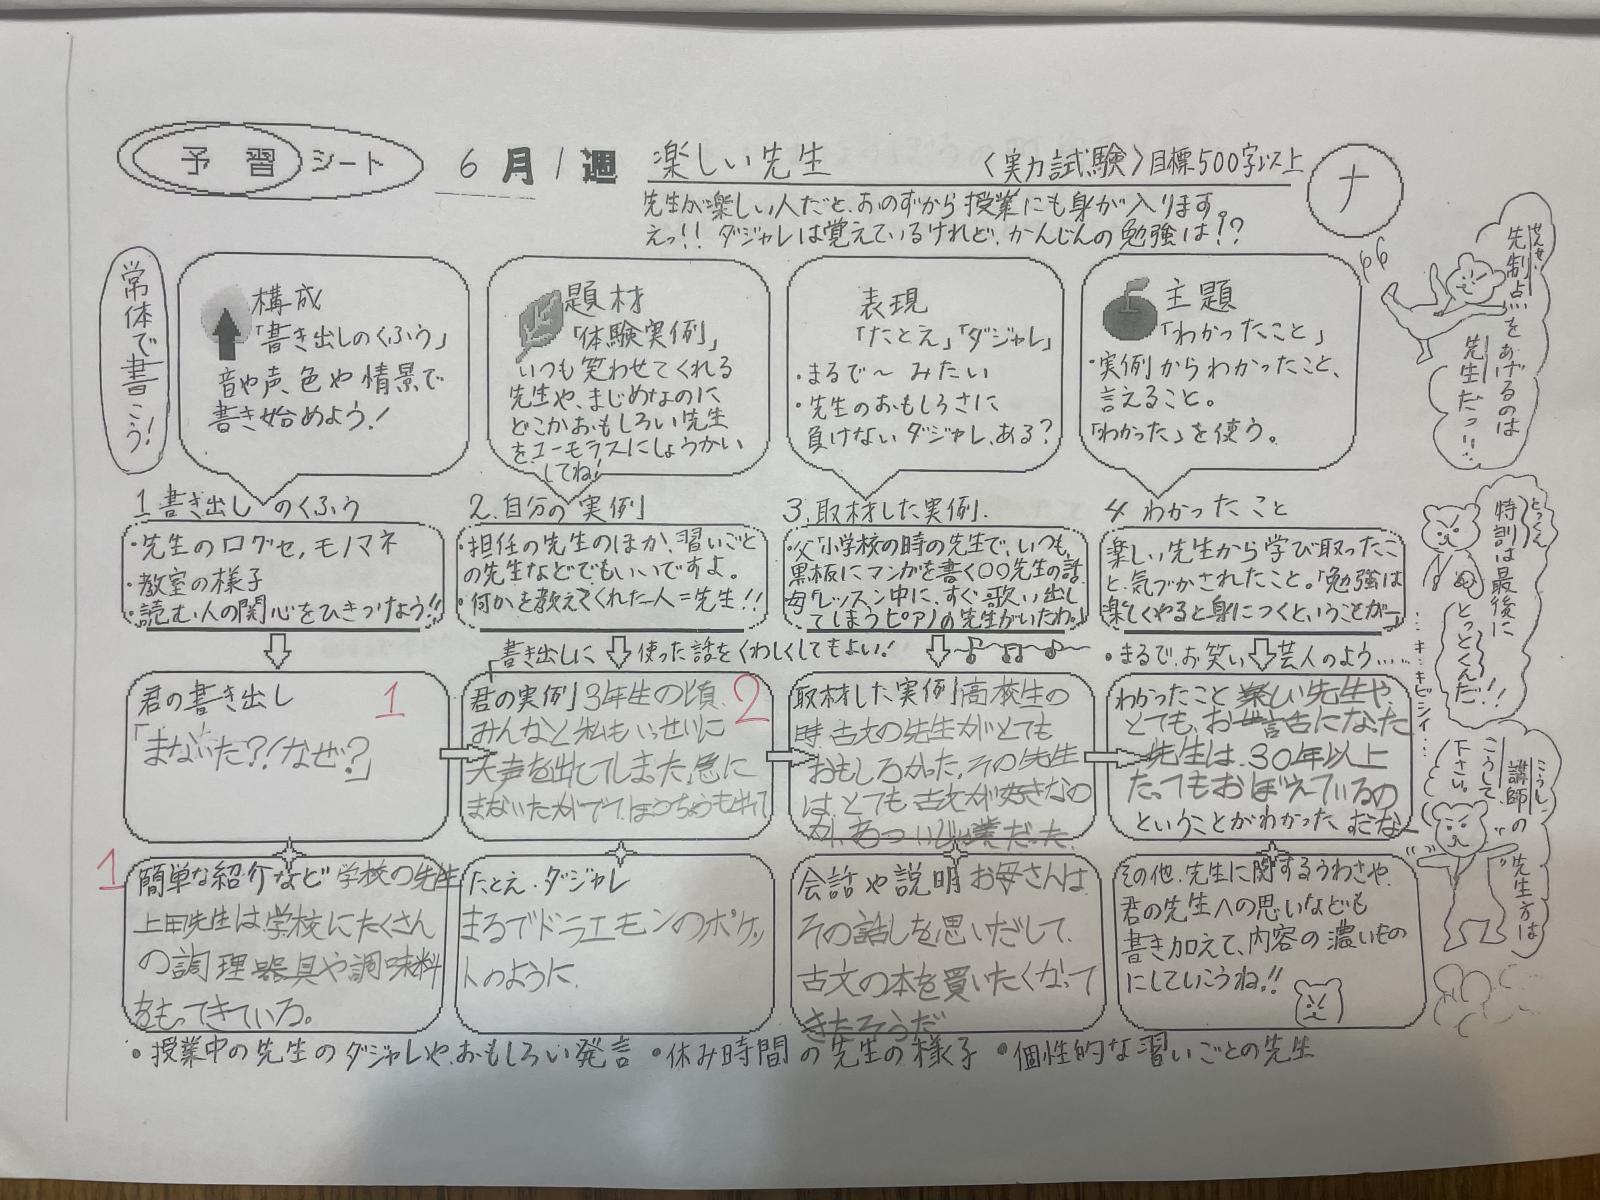 予習シート 6月1週 楽しい先生 〈実力試験〉目標500字以上 ナ
先生が楽しい人だと、おのずから授業にも身が入ります。
えっ!! ダジャレは覚えているけれど、かんじんの勉強は!?
常体で書こう!
構成
「書き出しのくふう」
音や声、色や情景で
書き始めよう!
題材
「体験実例」
いつも笑わせてくれる
先生や、まじめなのに
どこかおもしろい先生
を、ユーモラスにしょうかい
してね!
表現
「たとえ」「ダジャレ」
・まるで〜みたい
・先生のおもしろさに
負けないダジャレ、ある?
主題
「わかったこと」
・実例からわかったこと、
言えること。
「わかった」を使う。
せんせい
先制点をあげるのは
先生だっ!!
1.書き出しのくふう
・先生の口グセ,モノマネ
・教室の様子
・読む人の関心をひきつけよう!!
2.自分の実例
・担任の先生のほか、習いごと
の先生などでもいいですよ。
・何かを教えてくれた人=先生!!
3.取材した実例.
・父「小学校の時の先生で、いつも、
黒板にマンガを書く〇〇先生の話
母「レッスン中に、すぐ歌い出し
てしまうピアノの先生がいたわ。」
4 わかったこと
楽しい先生から学び取ったこ
と、気づかされたこと。「勉強は
楽しくやると身につくということが…」
とっくん
特訓は最後に
とっとくんだ!!
…キ・キビシイ…
書き出しに使った話をくわしくしてもよい!
・まるで、お笑い芸人のよう……
君の書き出し 1
「まないた?!なぜ?」
君の実例 3年生の頃. 2
みんなと私もいっせいに
大声を出してしまった,急に
まないたがでてほうちょうも出て
取材した実例 高校生の
時、古文の先生がとても
おもしろかった,その先生
は、とても古文が好きなの
か、あついじゅ業だった.
わかったこと 楽しい先生や、
とても、お世話になった
先生は、30年以上
たってもおぼえているの
ということがわかった、だな
1 簡単な紹介など 学校の先生
上田先生は学校にたくさん
の調理器具や調味料
をもってきている。
たとえ・ダジャレ
まるでドラエモンのポケッ
トのように.
会話や説明 お母さんは
その話しを思いだして、
古文の本を買いたくなって
きたそうだ
その他、先生に関するうわさや、
君の先生への思いなども
書き加えて、内容の濃いもの
にしていこうね!!
こうし
講師の先生方は
こうして
下さい。
・授業中の先生のダジャレや、おもしろい発言 ・休み時間の先生の様子 ・個性的な習いごとの先生